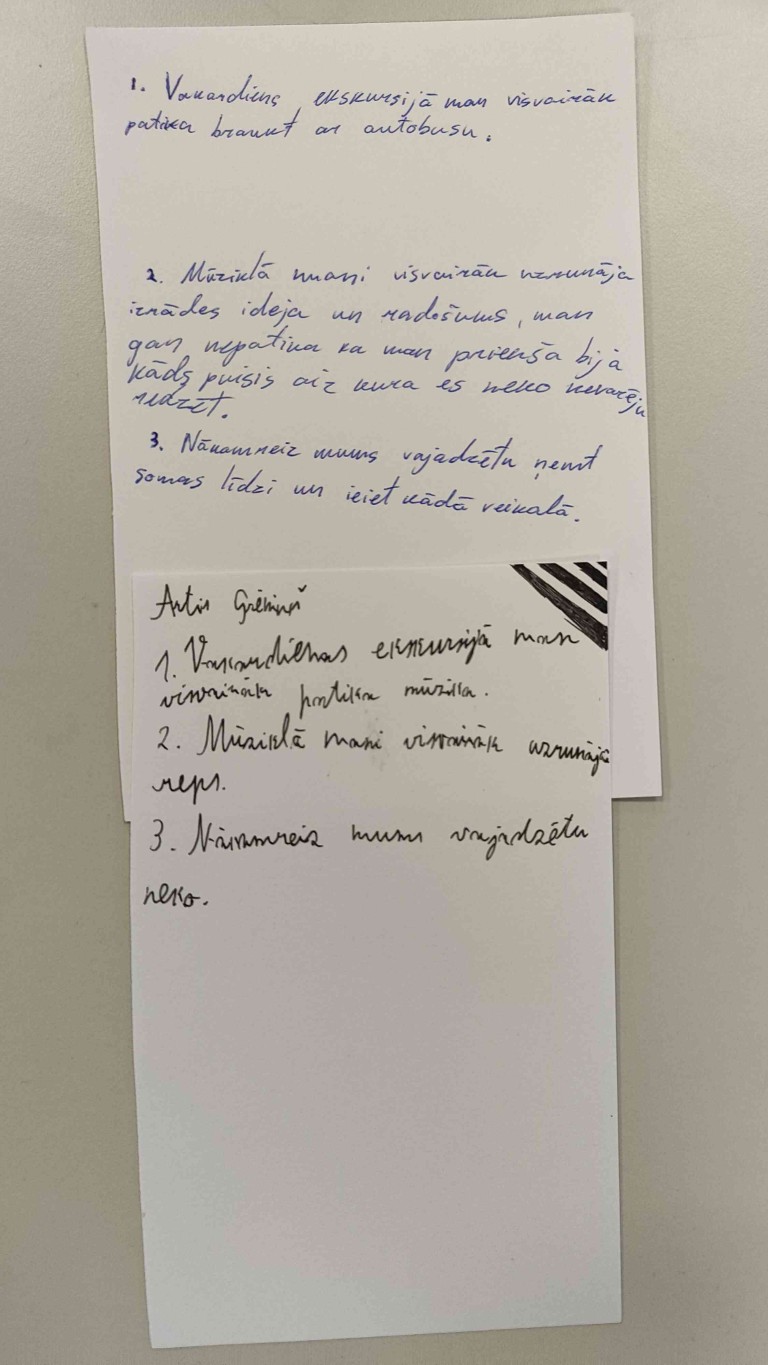 1. Vakardienas ekskursijā man visvairāk
patika braukt ar autobusu.
2. Mūziklā mani visvairāk uzrunāja
izrādes ideja un radošums, man
gan nepatika ka man priekša bija
kāds puisis aiz kura es neko nevarēju
redzēt.
3. Nākamreiz mums vajadzētu ņemt
somas līdzi un ieiet kādā veikalā.
1. Vakardienas ekskursijā man
visvairāk patika mūzika.
2. Mūziklā mani visvairāk uzrunāja
reps.
3. Nākamreiz mums vajadzētu
neko.